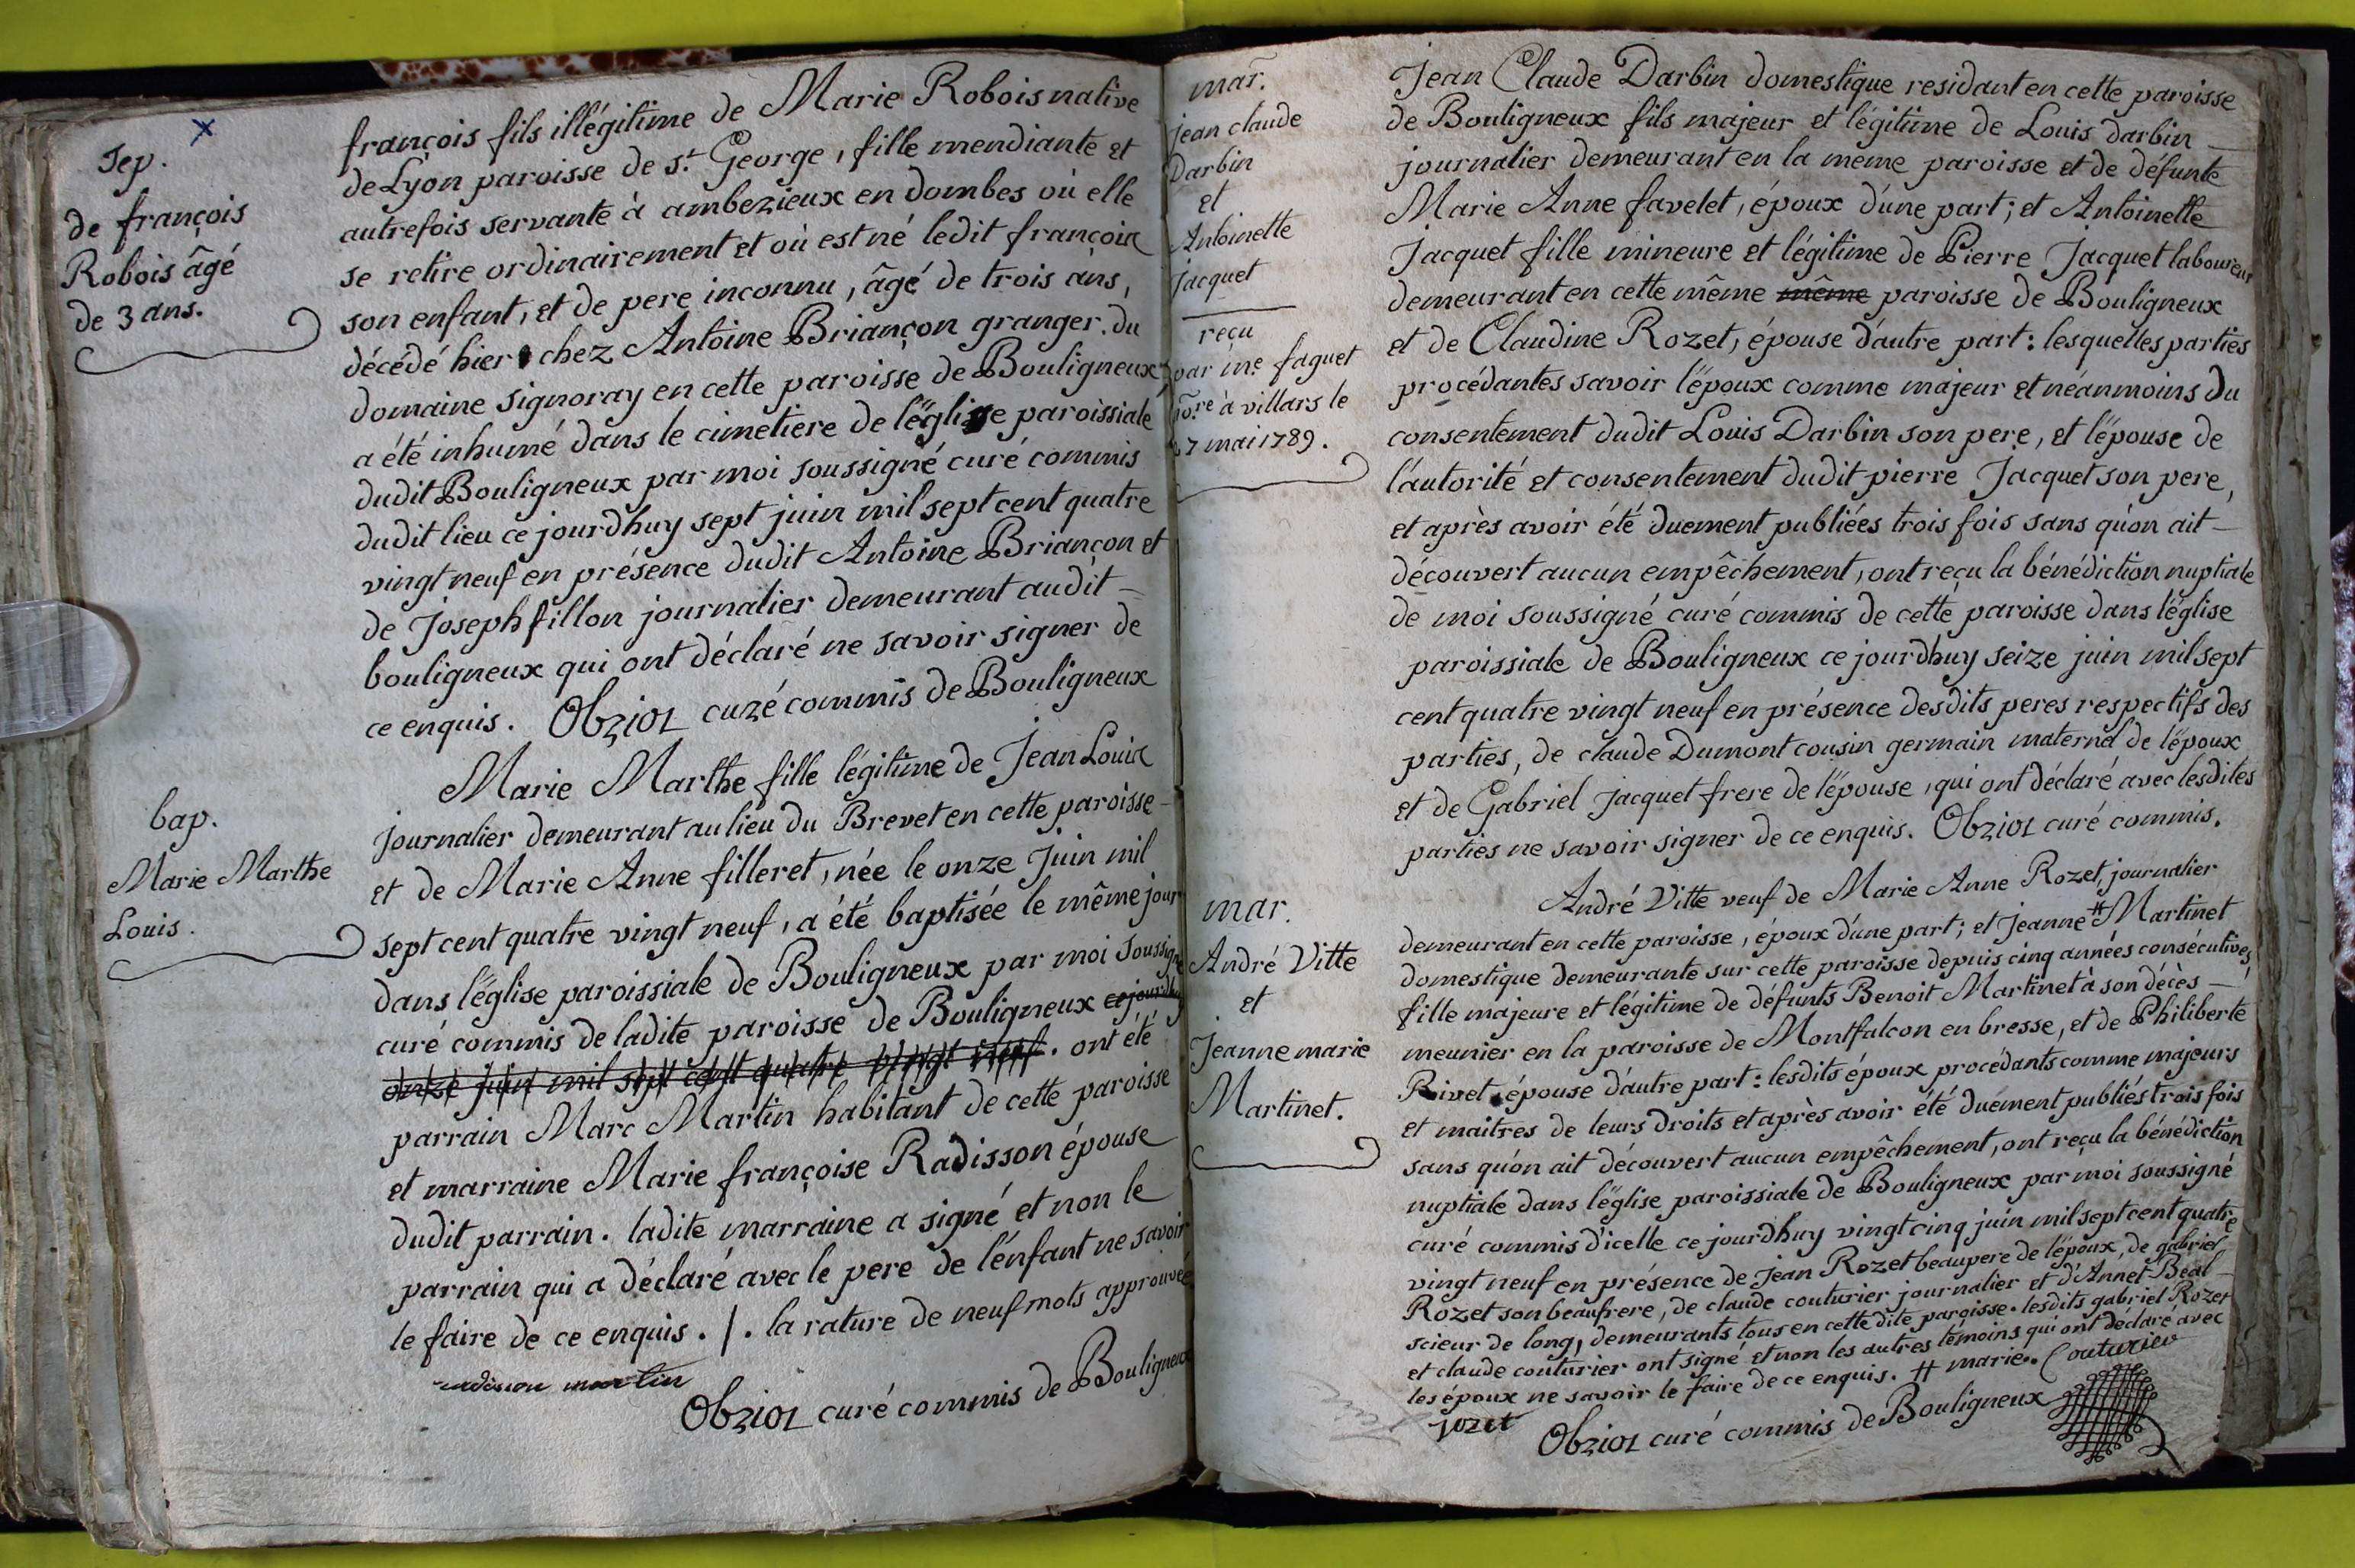 Sep.
de françois
Robois âgé
de 3 ans.
françois fils illégitime de Marie Robois native
de Lyon paroisse de st. George, fille mendiante et
autrefois servante à ambezieux en dombes où elle
se retire ordinairement et où est né ledit françois
son enfant, et de pere inconnu, âgé de trois ans,
décédé hier chez Antoine Briançon granger du
domaine signoray en cette paroisse de Bouligneux,
a été inhumé dans le cimetiere de l'église paroissiale
dudit Bouligneux par moi soussigné curé commis
dudit lieu ce jourdhuy sept juin mil sept cent quatre
vingt neuf en présence dudit Antoine Briançon et
de Joseph fillon journalier demeurant audit
bouligneux qui ont déclaré ne savoir signer de
ce enquis. Obriot curé commis de Bouligneux
bap.
Marie Marthe
Louis.
Marie Marthe fille légitime de Jean Louis
journalier demeurant au lieu du Brevet en cette paroisse
et de Marie Anne filleret, née le onze Juin mil
sept cent quatre vingt neuf, a été baptisée le même jour
dans l'église paroissiale de Bouligneux par moi soussigné
curé commis de ladite paroisse de Bouligneux ce jourdhuy
onze juin mil sept cent quatre vingt neuf. ont été
parrain Marc Martin habitant de cette paroisse
et marraine Marie françoise Radisson épouse
dudit parrain. ladite marraine a signé et non le
parrain qui a déclaré avec le pere de l'énfant ne savoir
le faire de ce enquis. /. la rature de neuf mots approuvée
radisson martin
Obriot curé commis de Bouligneux
mar.
jean claude
Darbin
et
Antoinette
jacquet
reçu
par me. faguet
nore. à villars le
27 mai 1789.
Jean Claude Darbin domestique residant en cette paroisse
de Bouligneux fils majeur et légitime de Louis darbin
journalier demeurant en la meme paroisse et de défunte
Marie Anne favelet, époux d'une part; et Antoinette
Jacquet fille mineure et légitime de Pierre Jacquet laboureur
demeurant en cette même même paroisse de Bouligneux
et de Claudine Rozet, épouse d'autre part: lesquelles parties
procédantes savoir l'époux comme majeur et néanmoins du
consentement dudit Louis Darbin son pere, et l'épouse de
l'autorité et consentement dudit pierre Jacquet son pere,
et après avoir été duement publiées trois fois sans qu'on ait
découvert aucun empêchement, ont reçu la bénédiction nuptiale
de moi soussigné curé commis de cette paroisse dans l'église
paroissiale de Bouligneux ce jourd'huy seize juin mil sept
cent quatre vingt neuf en présence desdits peres respectifs des
parties, de claude Dumont cousin germain maternel de l'époux
et de Gabriel jacquet frere de l'épouse, qui ont déclaré avec lesdites
parties ne savoir signer de ce enquis. Obriot curé commis.
mar.
André Vitte
et
Jeanne marie
Martinet.
André Vitte veuf de Marie Anne Rozet, journalier
demeurant en cette paroisse, époux d'une part; et jeanne # Martinet
domestique demeurante sur cette paroisse depuis cinq années consécutives,
fille majeure et légitime de défunts Benoit Martinet à son décès
meunier en la paroisse de Montfalcon en bresse, et de Philiberte
Rivet épouse d'autre part: lesdits époux procédants comme majeurs
et maitres de leurs droits et après avoir été duement publiés trois fois
sans qu'on ait découvert aucun empêchement, ont reçu la bénédiction
nuptiale dans l'église paroissiale de Bouligneux par moi soussigné
curé commis d'icelle ce jourdhuy vingt cinq juin mil sept cent quatre
vingt neuf en présence de jean Rozet beaupere de l'époux, de gabriel
Rozet son beaufrere, de claude couturier journalier et d'Annet Béal
scieur de long, demeurants tous en cette dite paroisse. lesdits gabriel Rozet
et claude couturier ont signé et non les autres témoins qui ont déclaré avec
les époux ne savoir le faire de ce enquis. # marie. Couturier
rozet Obriot curé commis de Bouligneux